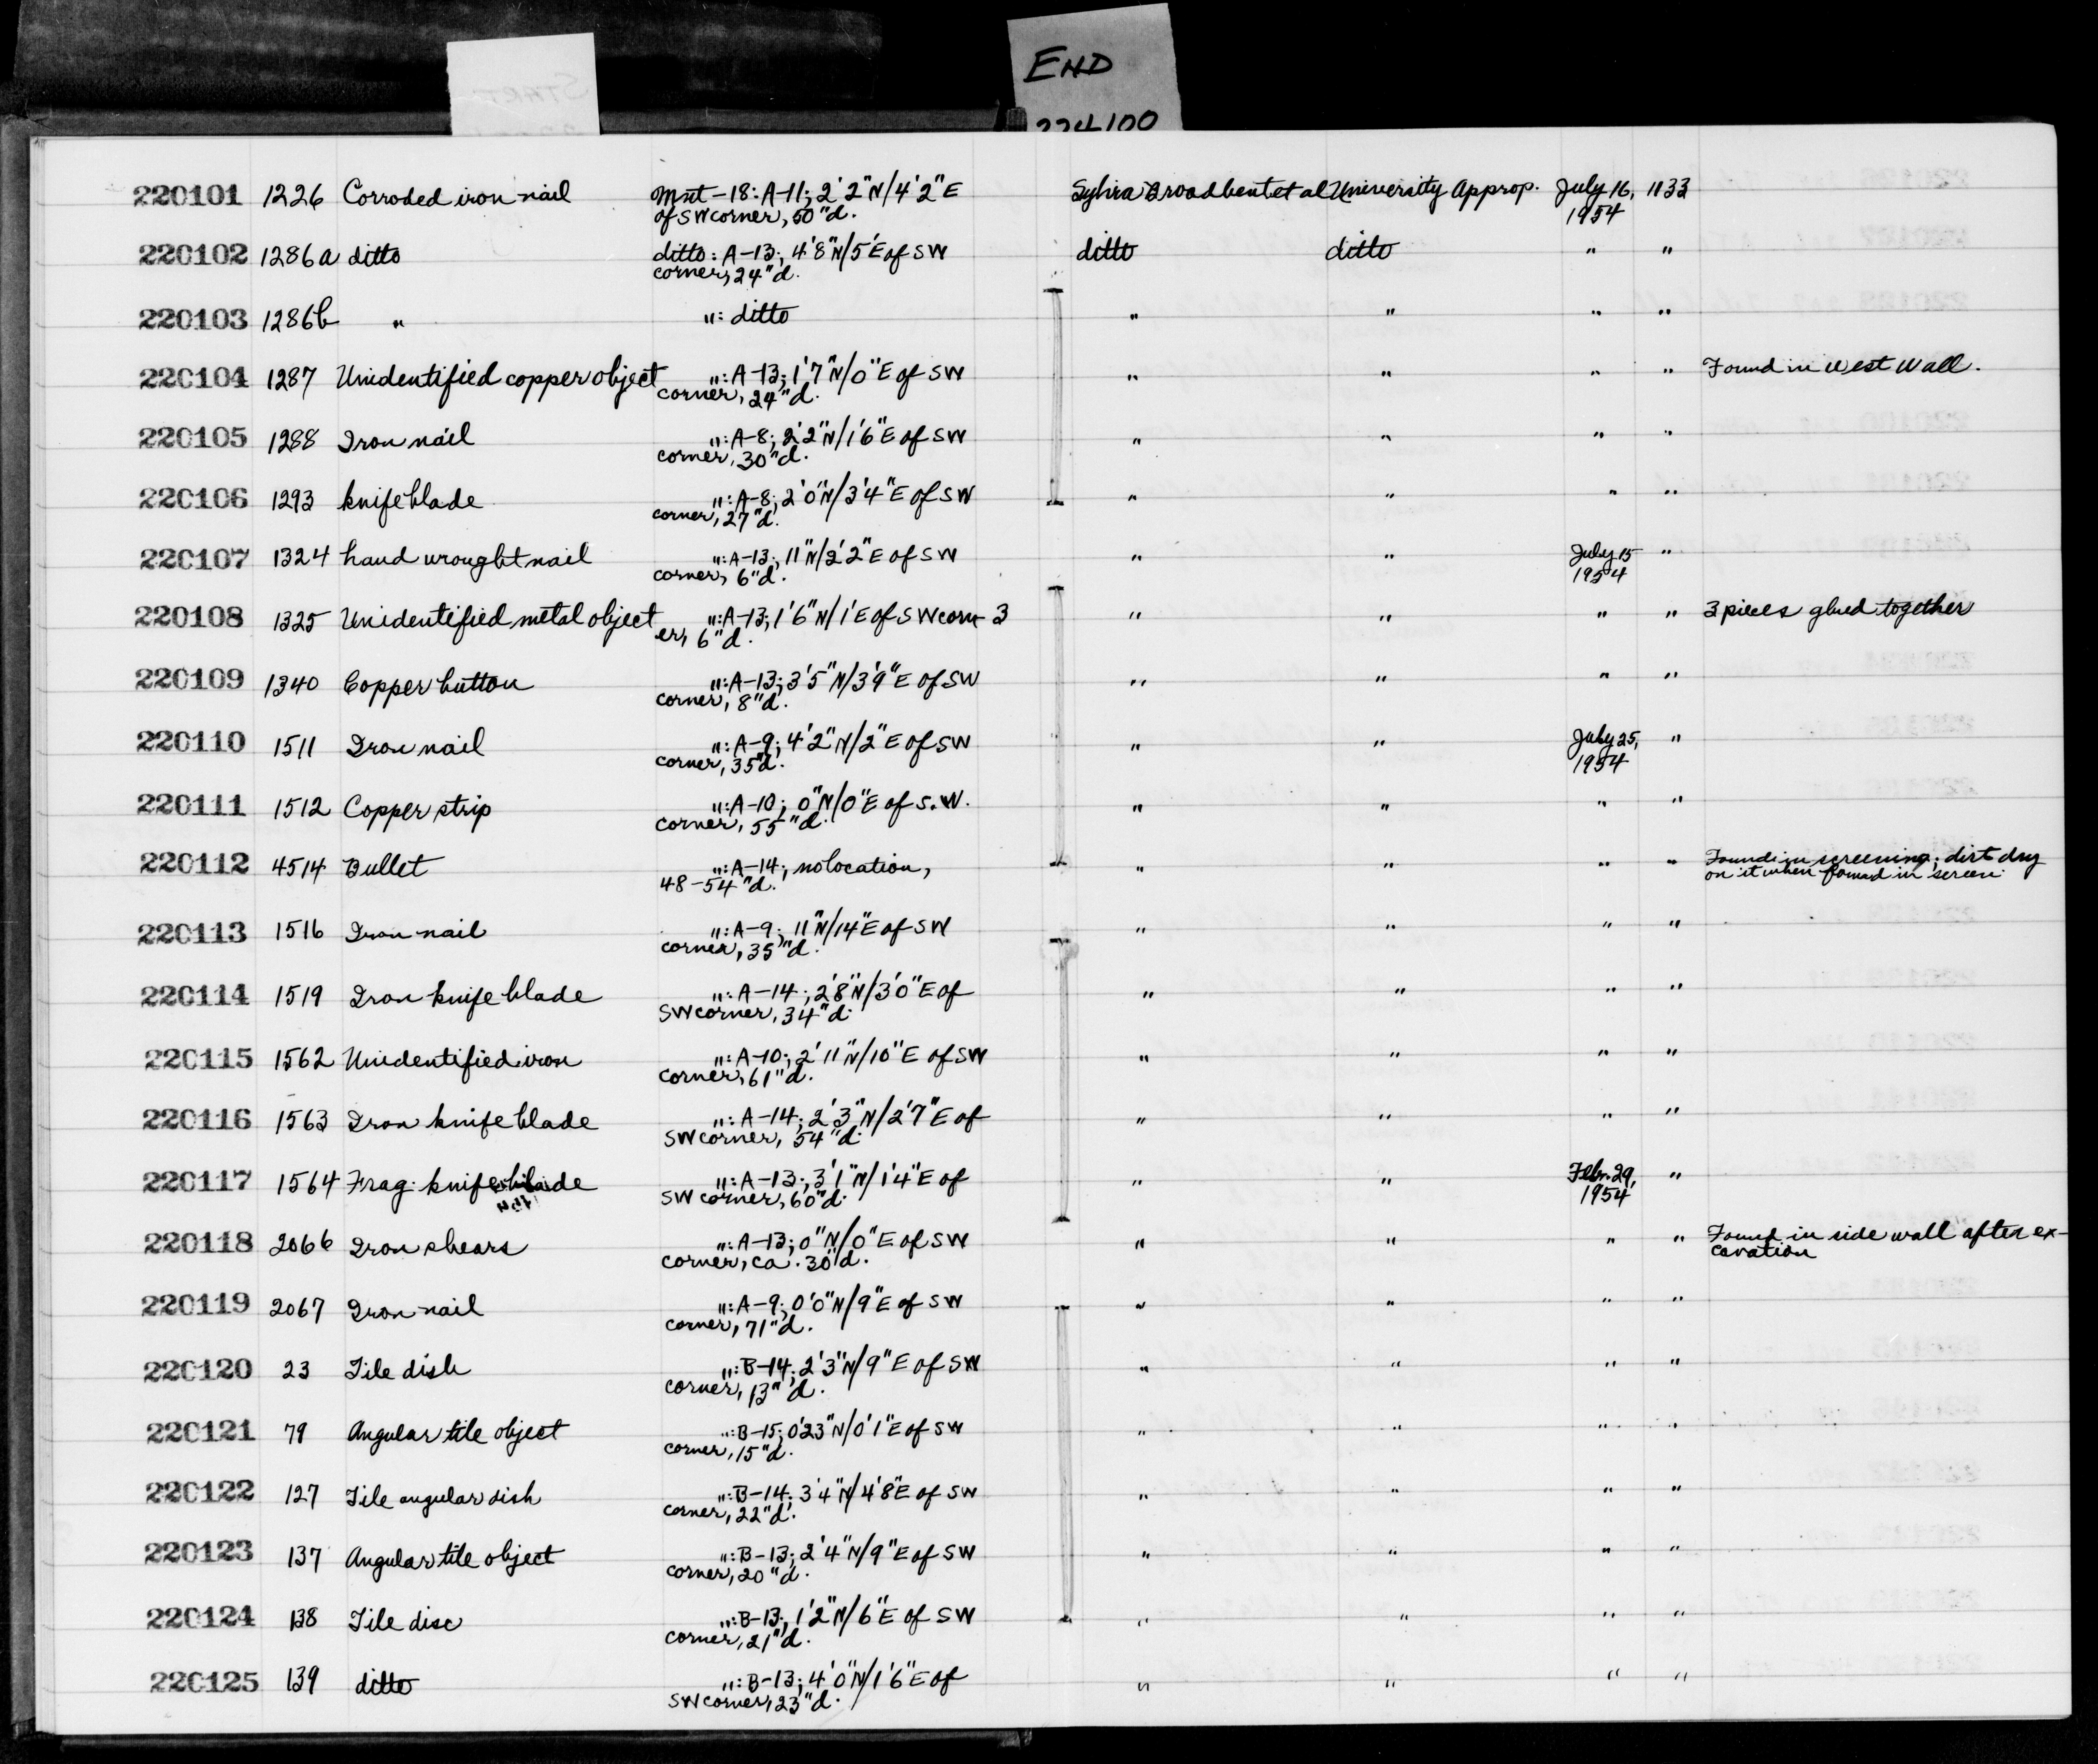 END
224100
220101 1226 Corroded iron nail Mnt-18: A-11; 2'2"N/4'2"E Sylvia Broadbent et al University Approp. July 16, 1133
of SW corner, 50"d. 1954
220102 1286a ditto ditto: A-13; 4'8"N/5'E of SW ditto ditto " "
corner, 24"d.
220103 1286b " ": ditto " " " "
220104 1287 Unidentified copper object ": A-13; 1'7"N/0"E of SW " " " " Found in West Wall.
corner, 24"d.
220105 1288 Iron nail ": A-8; 2'2"N/1'6"E of SW " " " "
corner, 30"d.
220106 1293 knife blade ": A-8; 2'0"N/3'4"E of SW " " " "
corner, 27"d.
220107 1324 hand wrought nail ": A-13; 11"N/2'2"E of SW " " July 15 "
corner, 6"d. 1954
220108 1325 Unidentified metal object ": A-13; 1'6"N/1'E of SW corn- 3 " " " " 3 pieces glued together
er, 6"d.
220109 1340 Copper button ": A-13; 3'5"N/3'9"E of SW " " " "
corner, 8"d.
220110 1511 Iron nail ": A-9; 4'2"N/2"E of SW " " July 25, "
corner, 35"d. 1954
220111 1512 Copper strip ": A-10; 0"N/0"E of S.W. " " " "
corner, 55"d.
220112 4514 Bullet ": A-14; no location, " " " " Found in screening; dirt dry
48-54"d. on it when found in screen.
220113 1516 Iron nail ": A-9; 11"N/14"E of SW " " " "
corner, 35"d.
220114 1519 Iron knife blade ": A-14; 2'8"N/3'0"E of " " " "
SW corner, 34"d.
220115 1562 Unidentified iron ": A-10; 2'11"N/10"E of SW " " " "
corner, 61"d.
220116 1563 Iron knife blade ": A-14; 2'3"N/2'7"E of " " " "
SW corner, 54"d.
220117 1564 Frag. knife blade ": A-13; 3'1"N/1'4"E of " " Febr. 29, "
SW corner, 60"d. 1954
220118 2066 Iron shears ": A-13; 0"N/0"E of SW " " " " Found in side wall after ex-
corner, ca. 30"d. cavation
220119 2067 Iron nail ": A-9; 0'0"N/9"E of SW " " " "
corner, 71"d.
220120 23 Tile dish ": B-14; 2'3"N/9"E of SW " " " "
corner, 13"d.
220121 79 Angular tile object ": B-15; 0'23"N/0'1"E of SW " " " "
corner, 15"d.
220122 127 Tile angular dish ": B-14; 3'4"N/4'8"E of SW " " " "
corner, 22"d.
220123 137 Angular tile object ": B-13; 2'4"N/9"E of SW " " " "
corner, 20"d.
220124 138 Tile disc ": B-13; 1'2"N/6"E of SW " " " "
corner, 21"d.
220125 139 ditto ": B-13; 4'0"N/1'6"E of " " " "
SW corner, 23"d.